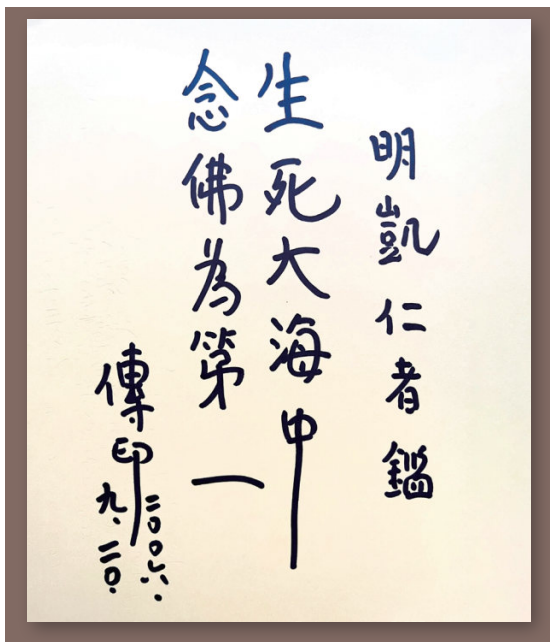 明凱仁者鑑
生死大海中
念佛為第一
傳印
二〇〇六.
九.二〇.